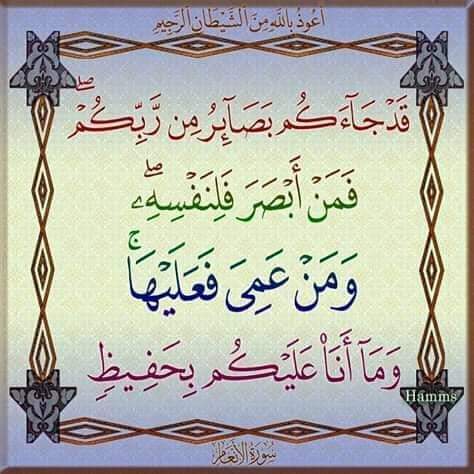 أعوذ بالله من الشيطان الرجيم
قَدْ جَآءَكُم بَصَآئِرُ مِن رَّبِّكُمْۖ
فَمَنْ أَبْصَرَ فَلِنَفْسِهِۦۖ
وَمَنْ عَمِىَ فَعَلَيْهَاۚ
وَمَآ أَنَا۠ عَلَيْكُم بِحَفِيظٍ
Hamms
سورة الأنعام